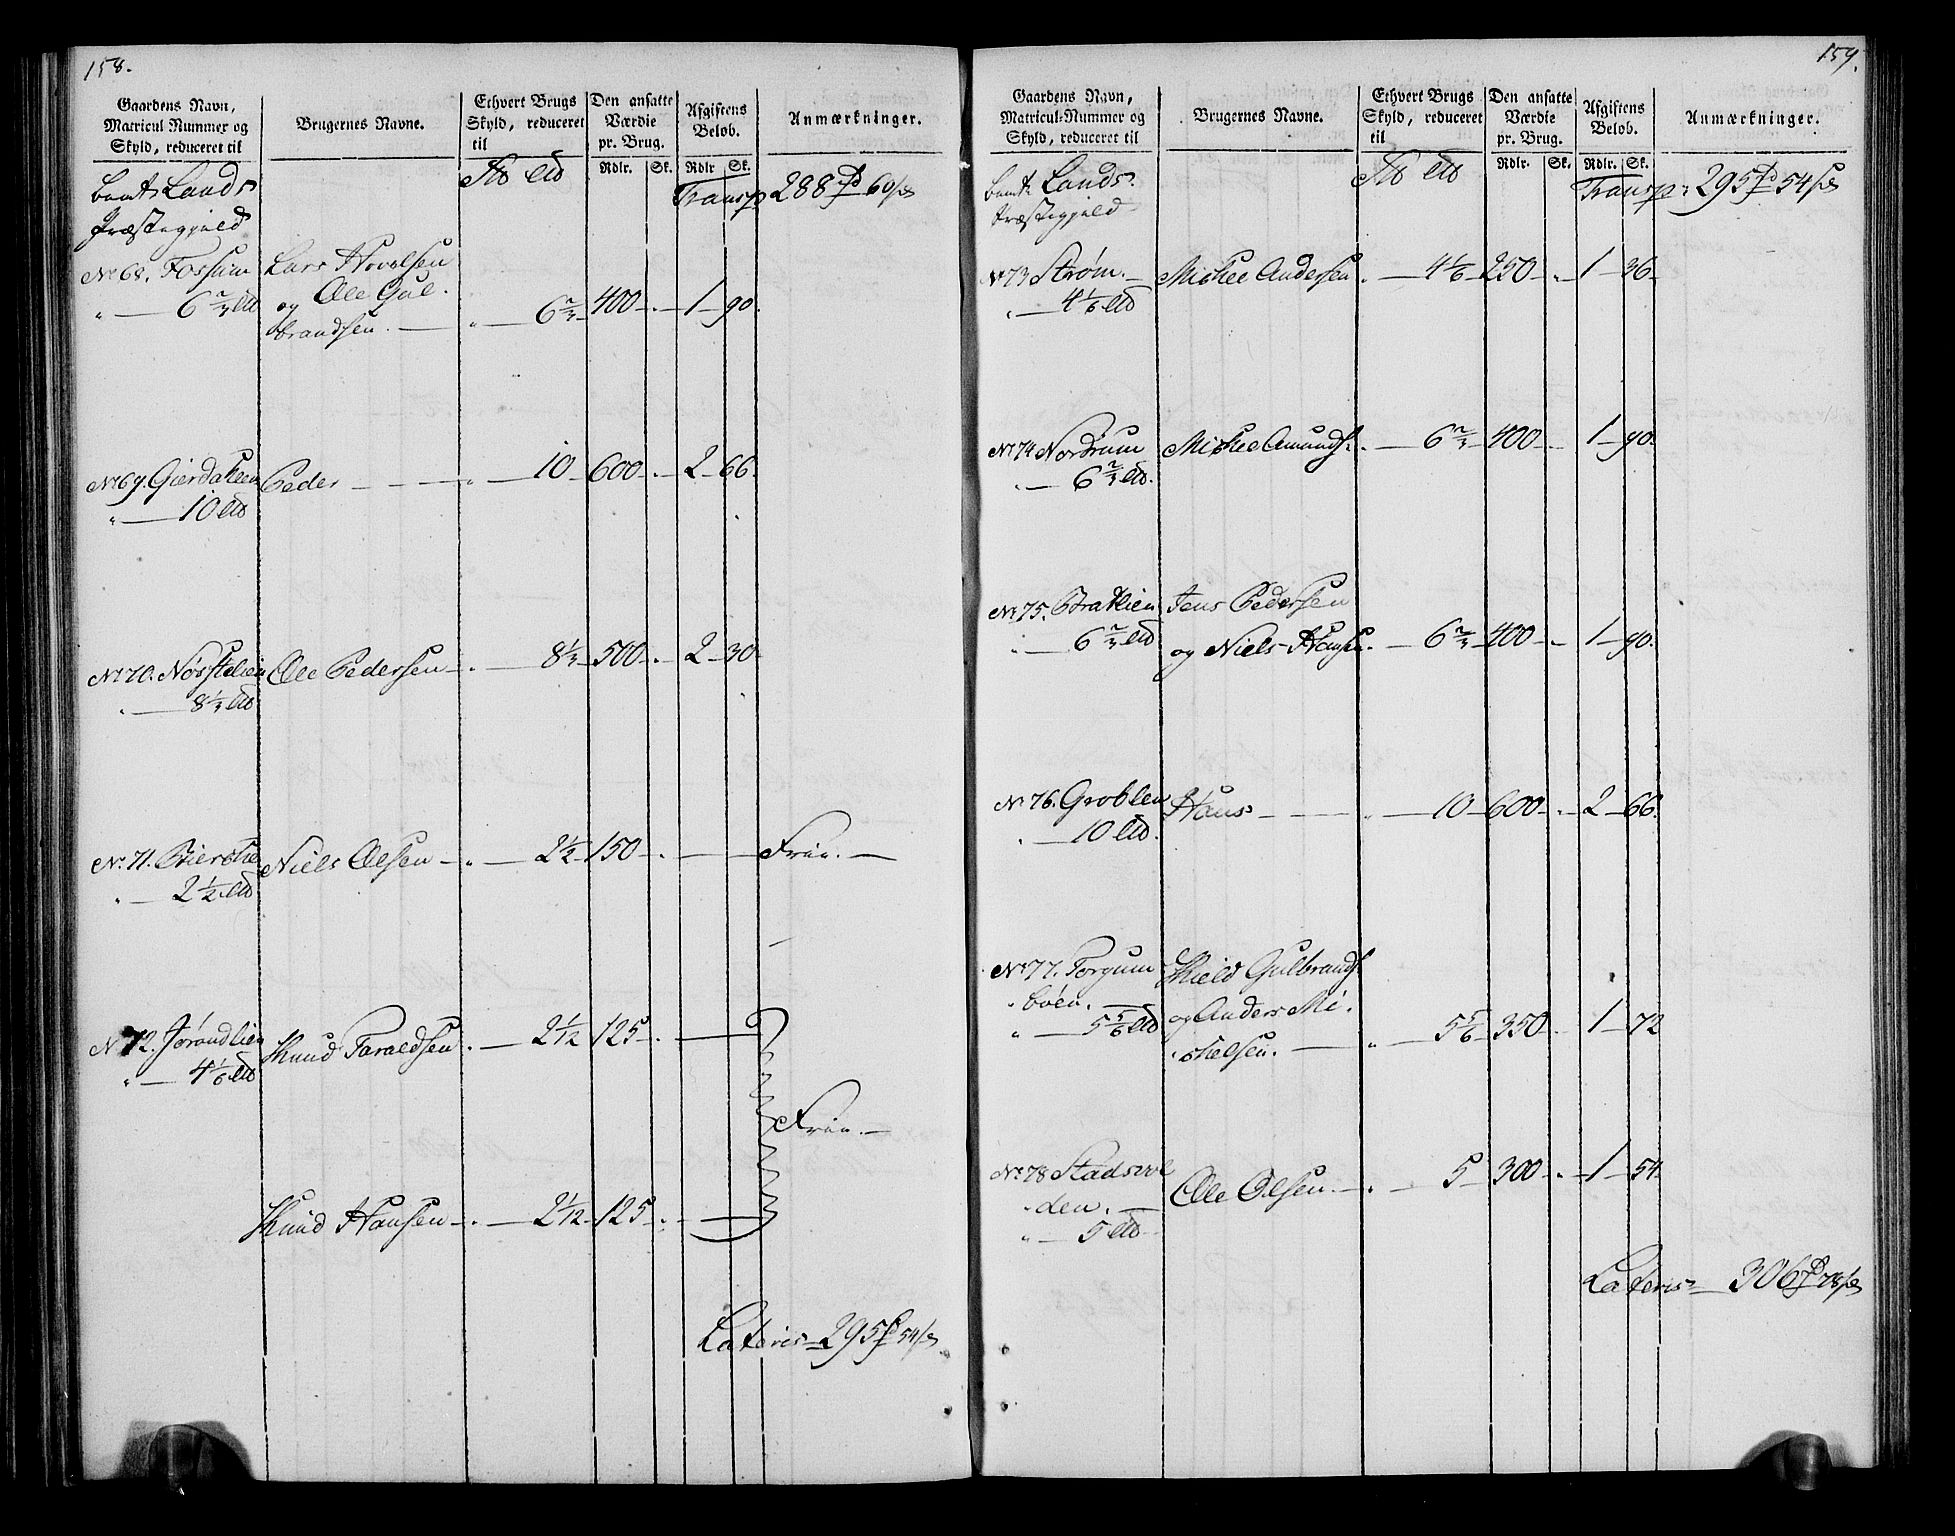 158.
Gaardens Navn, Matricul Nummer og Skyld, reduceret til
Brugernes Navne.
Ethvert Brugs Skyld, reduceret til
Den ansatte Værdie pr. Brug.
Afgiftens Belöb.
Anmærkninger.
Rdlr. Sk. Rdlr Sk.
Lands
Præstegjeld
Transp 288 60
No 68. Fossum Lars Hovelsen
6 2/3 og Ole Gul-
brandsen. 6 2/3 400 1 90.
No 69. Peder 10 600 2 66.
10
No 70. Nosstelien Ole Pedersen 8 1/3 500 2 30
8 1/3
No 71. Niels Olsen 2 1/2 150 Frie.
2 1/2
No 72. Jørandlien Knud Taraldsen 2 1/12 125
4 1/6
Frie.
Knud Hansen 2 1/12 125
Lateris 295 54
159.
Gaardens Navn, Matricul-Nummer og Skyld, reduceret til
Brugernes Navne.
Ethvert Brugs Skyld, reduceret til
Den ansatte Værdie pr. Brug.
Afgiftens Belöb.
Anmærkninger.
Rdlr. Sk. Rdlr. Sk.
Lands
Præstegjeld
Transp: 295 54
No 73 Strøm. Mickel Andersen 4 1/6 250 1 36
4 1/6
No 74 Nordrum Mickel Amunds. 6 2/3 400 1 90.
6 2/3
No 75. Braklien Jens Pedersen
6 2/3 og Niels Hansen 6 2/3 400 1 90.
No 76. Groblen Hans 10 600 2 66.
10
No 77. Torgum Kield Gulbrands.
böen. og Anders Mi-
5 5/6 ckelsen. 5 5/6 350 1 72
No 78 Stadsvol
den. Ole Olsen. 5 300 1 54
5
Lateris 306 78